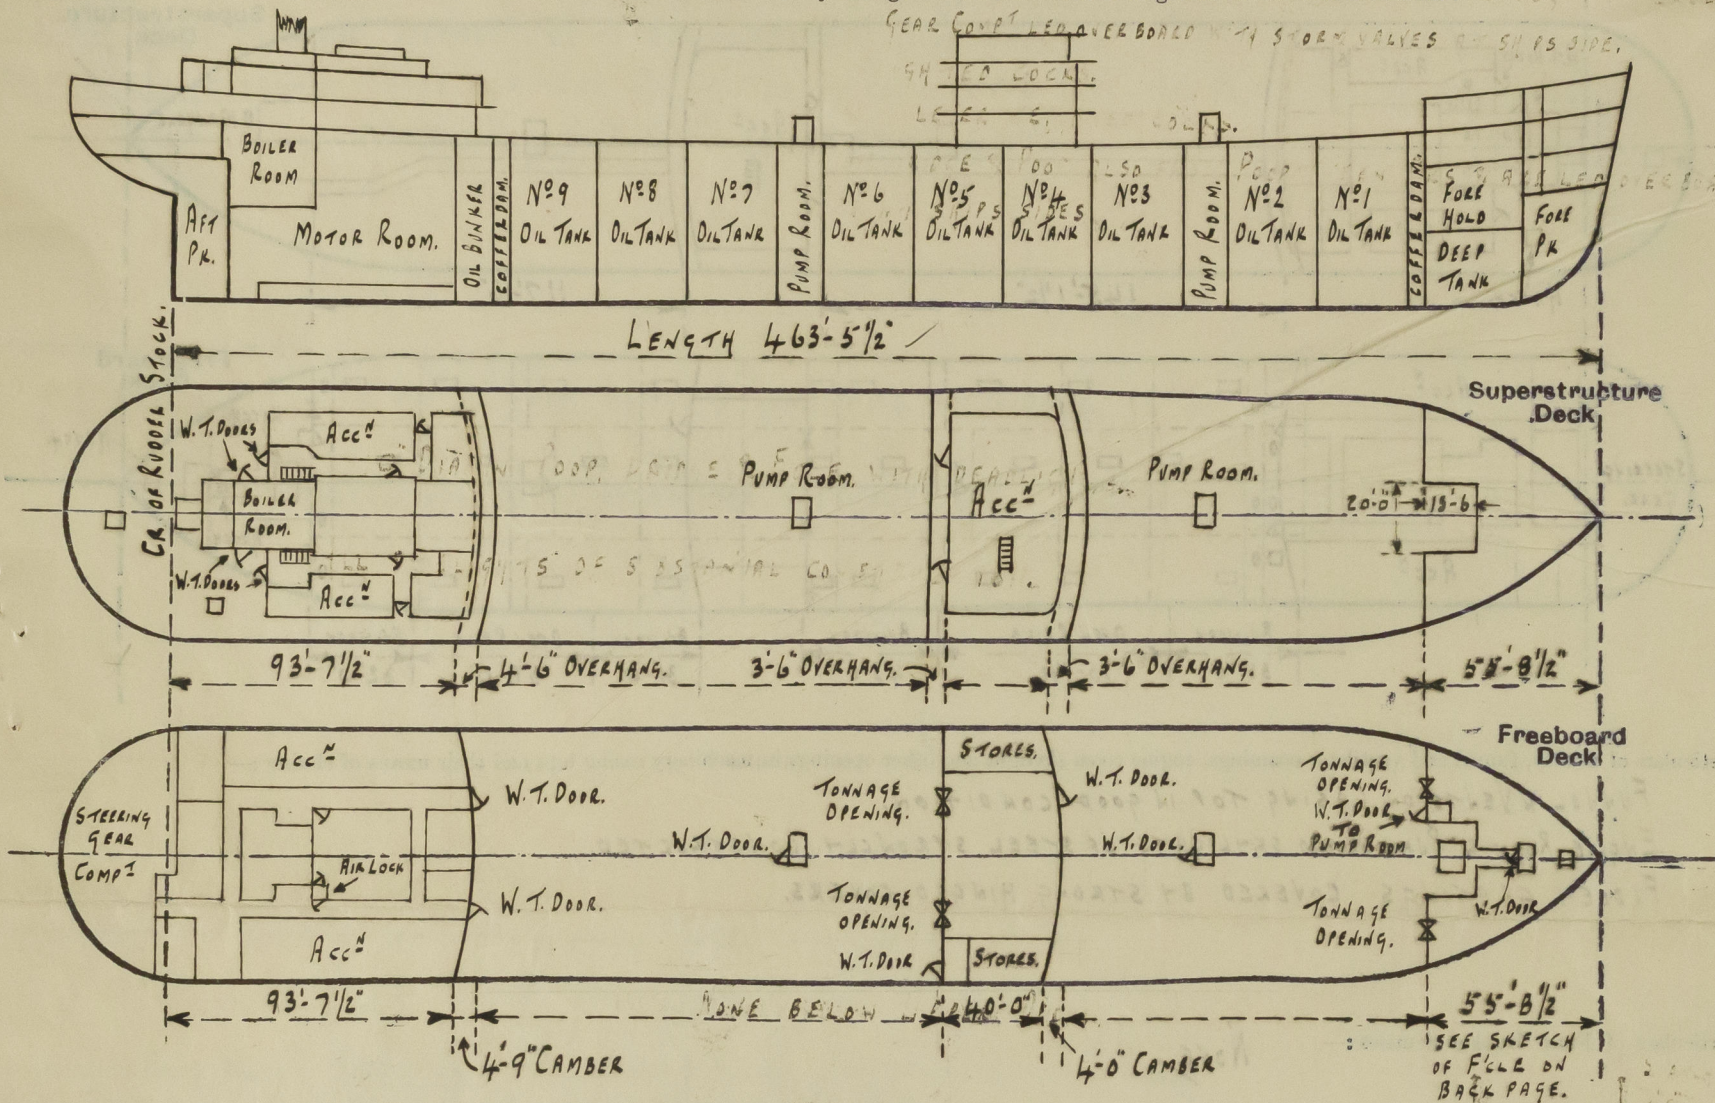 GEAR COMPT LED OVERBOARD WITH STORM VALVES AT SHIPS SIDE.
BOILER
ROOM
AFT
PK.
MOTOR ROOM.
OIL BUNKER
COFFERDAM.
Nº9
OIL TANK
Nº8
OIL TANK
Nº7
OIL TANK
PUMP ROOM.
Nº6
OIL TANK
Nº5
OIL TANK
Nº4
OIL TANK
Nº3
OIL TANK
PUMP ROOM.
Nº2
OIL TANK
Nº1
OIL TANK
COFFERDAM.
FORE
HOLD
DEEP
TANK
FORE
PK
LENGTH 463'-5½"
CR. OF RUDDER STOCK.
Superstructure
Deck
W.T. DOORS
ACCN
BOILER
ROOM.
W.T. DOORS
ACCN
PUMP ROOM.
ACCN
PUMP ROOM.
20'-0"
13'-6
93'-7½"
4'-6" OVERHANG.
3'-6" OVERHANG.
3'-6" OVERHANG.
55'-8½"
Freeboard
Deck
STEERING
GEAR
COMPT
ACCN
AIR LOCK
ACCN
W.T. DOOR.
W.T. DOOR.
W.T. DOOR.
TONNAGE
OPENING.
TONNAGE
OPENING.
W.T. DOOR
STORES.
STORES.
W.T. DOOR.
W.T. DOOR.
TONNAGE
OPENING.
W.T. DOOR
TO
PUMP ROOM
W.T. DOOR
TONNAGE
OPENING.
93'-7½"
NONE BELOW
40'-0"
55'-8½"
4'-9" CAMBER
4'-0" CAMBER
SEE SKETCH
OF F'CLE ON
BACK PAGE.